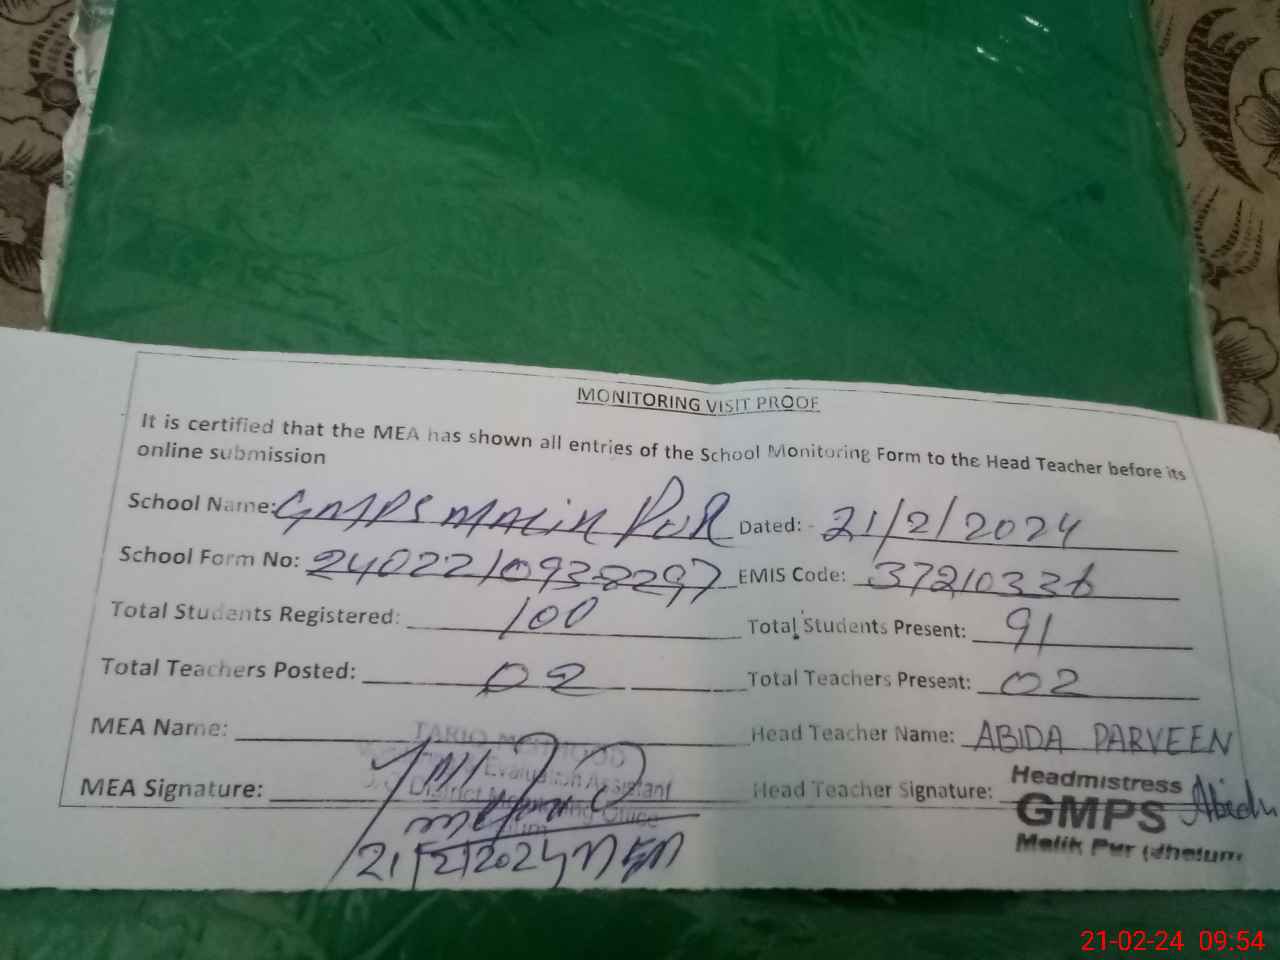 MONITORING VISIT PROOF
It is certified that the MEA has shown all entries of the School Monitoring Form to the Head Teacher before its
online submission
School Name: GMPS MALIK PUR Dated: - 21/2/2024
School Form No: 2402210938297 EMIS Code: 37210336
Total Students Registered: 100 Total Students Present: 91
Total Teachers Posted: 02 Total Teachers Present: 02
MEA Name: TARIQ MEHMOOD Head Teacher Name: ABIDA PARVEEN
Evaluation Assistant
MEA Signature: District Monitoring Office Head Teacher Signature: Headmistress Abida
GMPS
Malik Pur (Jhelum)
21/2/2024
21-02-24 09:54